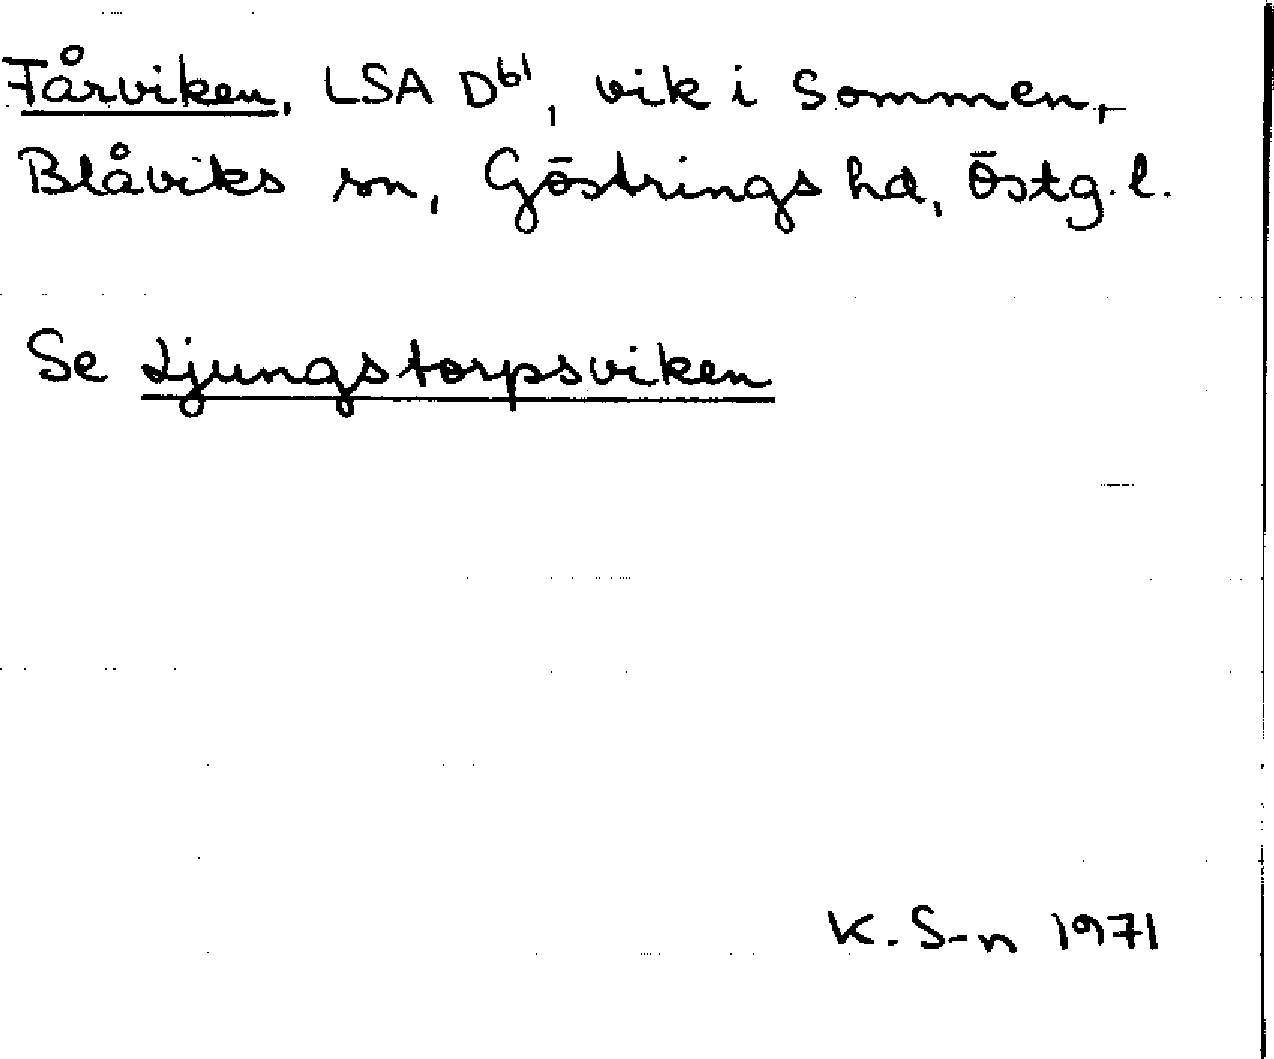 Fårviken, LSA D61, vik i Sommen,
Blåviks sn, Göstrings hd, Östg. l.
Se Ljungstorpsviken
K. S-n 1971